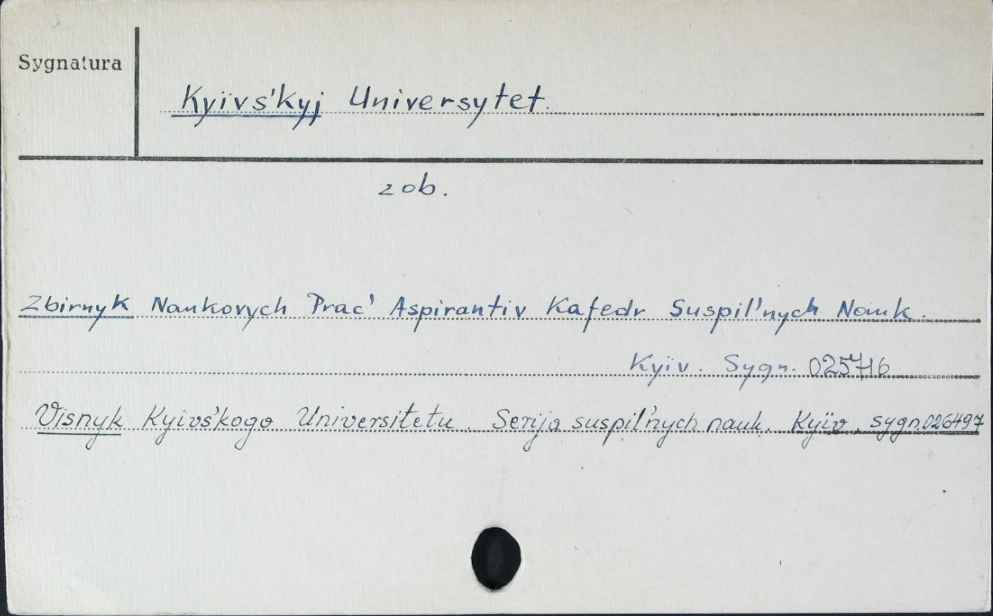 Sygnatura
Kyivs'kyj Universytet.
zob.
Zbirnyk Naukovych Prac' Aspirantiv Kafedr Suspil'nych Nauk.
Kyiv. Sygn. 025716
Visnyk Kyivs'kogo Universitetu. Serija suspil'nych nauk. Kyïv. sygn. 026497